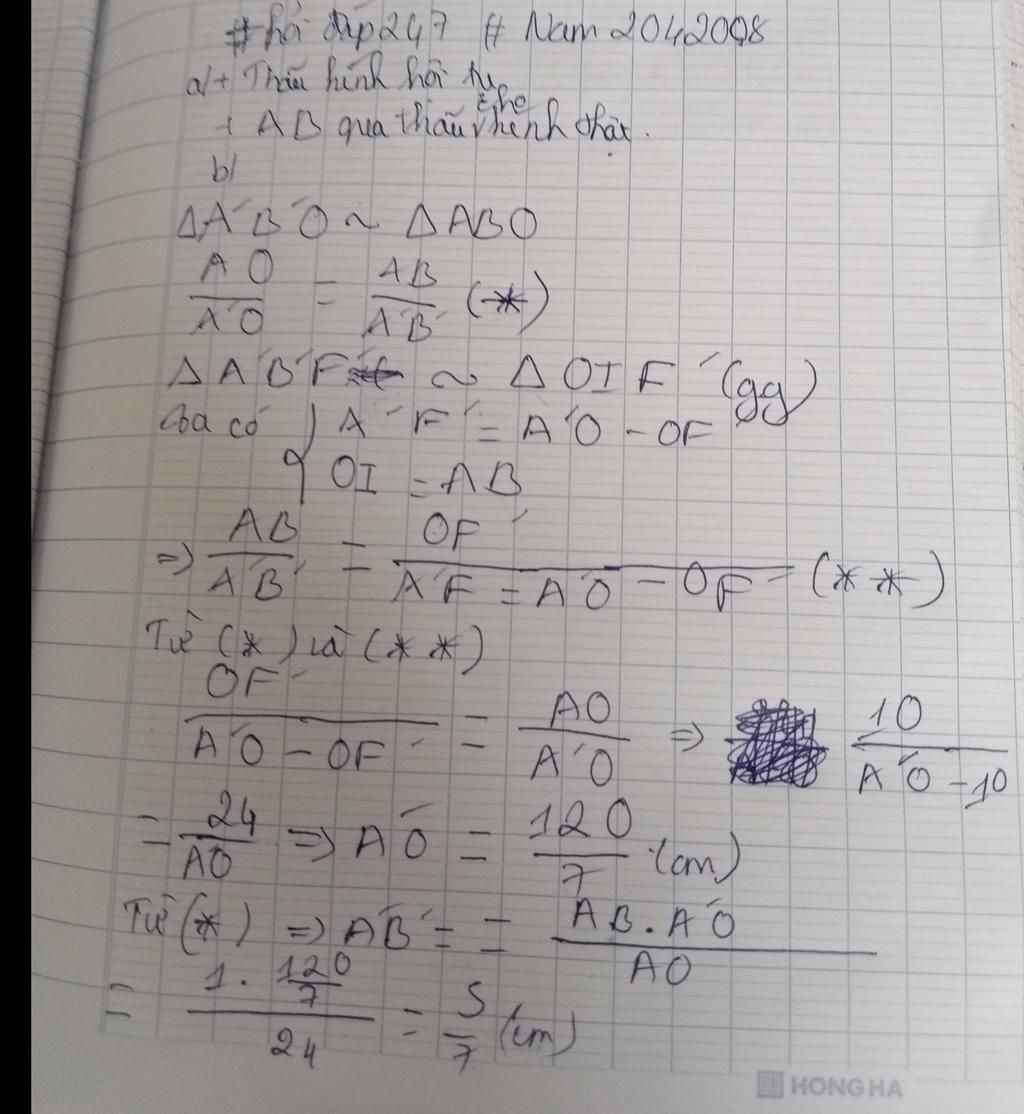 # hỏi đáp 247 # Nam 2042008
a/ + Thấu kính hội tụ
+ AB qua thấu kính cho ảnh thật.
b/
ΔA'B'O ~ ΔABO
AO/A'O = AB/A'B' (*)
ΔA'B'F' ~ ΔOIF' (gg)
Ta có { A'F' = A'O - OF'
OI = AB
=> AB/A'B' = OF'/A'F' = A'O - OF (**)
Từ (*) và (**)
OF'/A'O - OF' = AO/A'O => 10/A'O - 10
= 24/A'O => A'O = 120/7 (cm)
Từ (*) => A'B' = = AB.A'O/AO
= 1. 120/7 / 24 = 5/7 (cm)
HONG HA